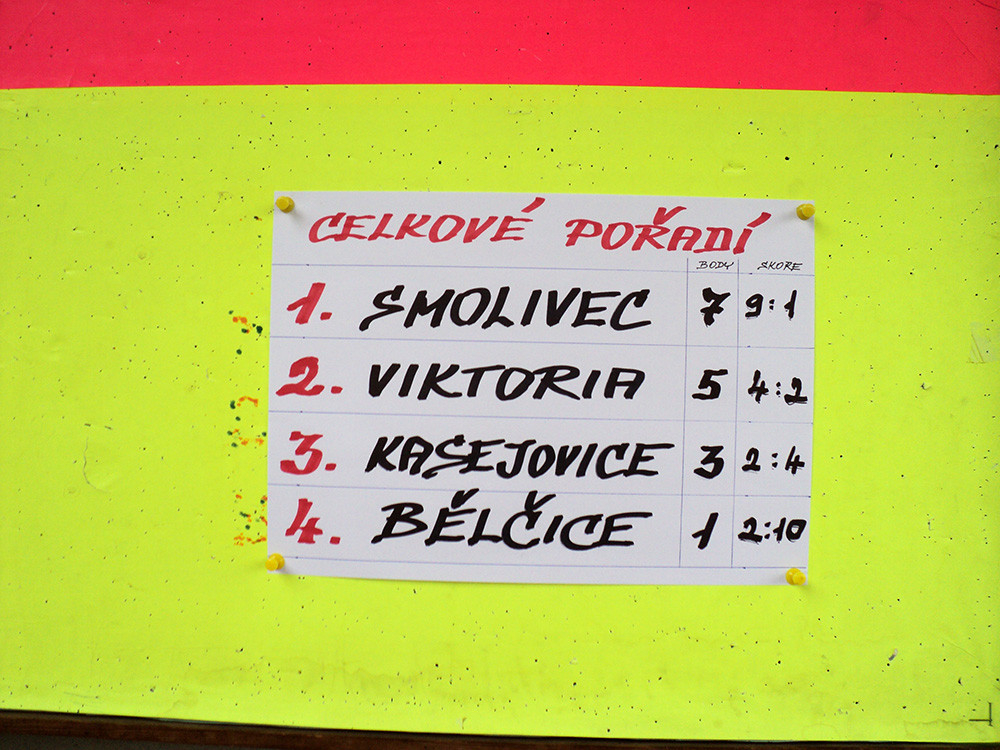 CELKOVÉ POŘADÍ
BODY SKORE
1. SMOLIVEC 7 9:1
2. VIKTORIA 5 4:2
3. KASEJOVICE 3 2:4
4. BĚLČICE 1 2:10